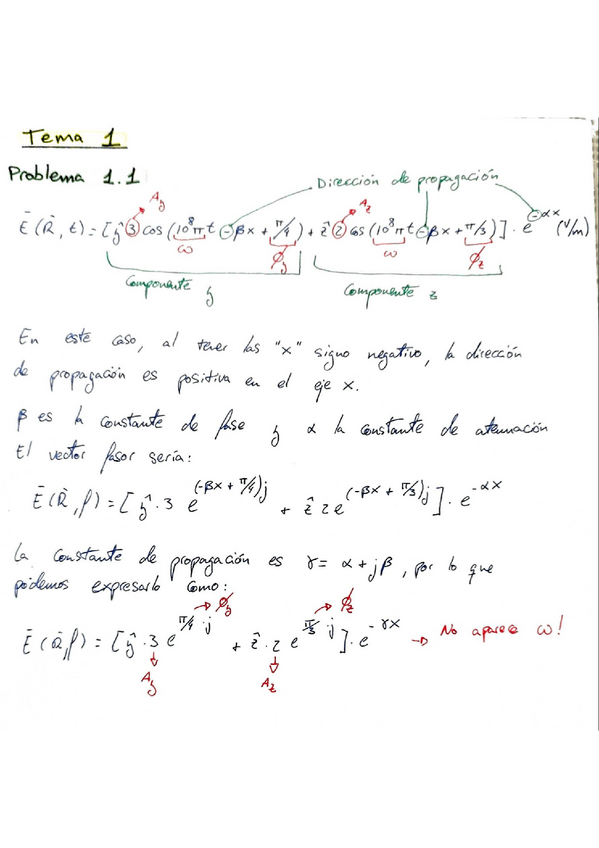 Tema 1
Problema 1.1
Dirección de propagación
A_y A_z
Ē(R̄, t) = [ŷ 3 cos(10⁸πt - βx + π/4) + ẑ 2 cos(10⁸πt - βx + π/3)] · e^(-αx) (V/m)
ω ϕ_y ω ϕ_z
Componente y Componente z
En este caso, al tener las "x" signo negativo, la dirección
de propagación es positiva en el eje x.
β es la constante de fase y α la constante de atenuación
El vector fasor sería:
Ē(R̄, f) = [ŷ · 3 e^((-βx + π/4)j) + ẑ 2 e^((-βx + π/3)j)] · e^(-αx)
La constante de propagación es γ = α + jβ, por lo que
podemos expresarlo como:
→ ϕ_y → ϕ_z
Ē(R̄, f) = [ŷ · 3 e^(π/4 · j) + ẑ · 2 e^(π/3 · j)] · e^(-γx) → No aparece ω!
A_y A_z